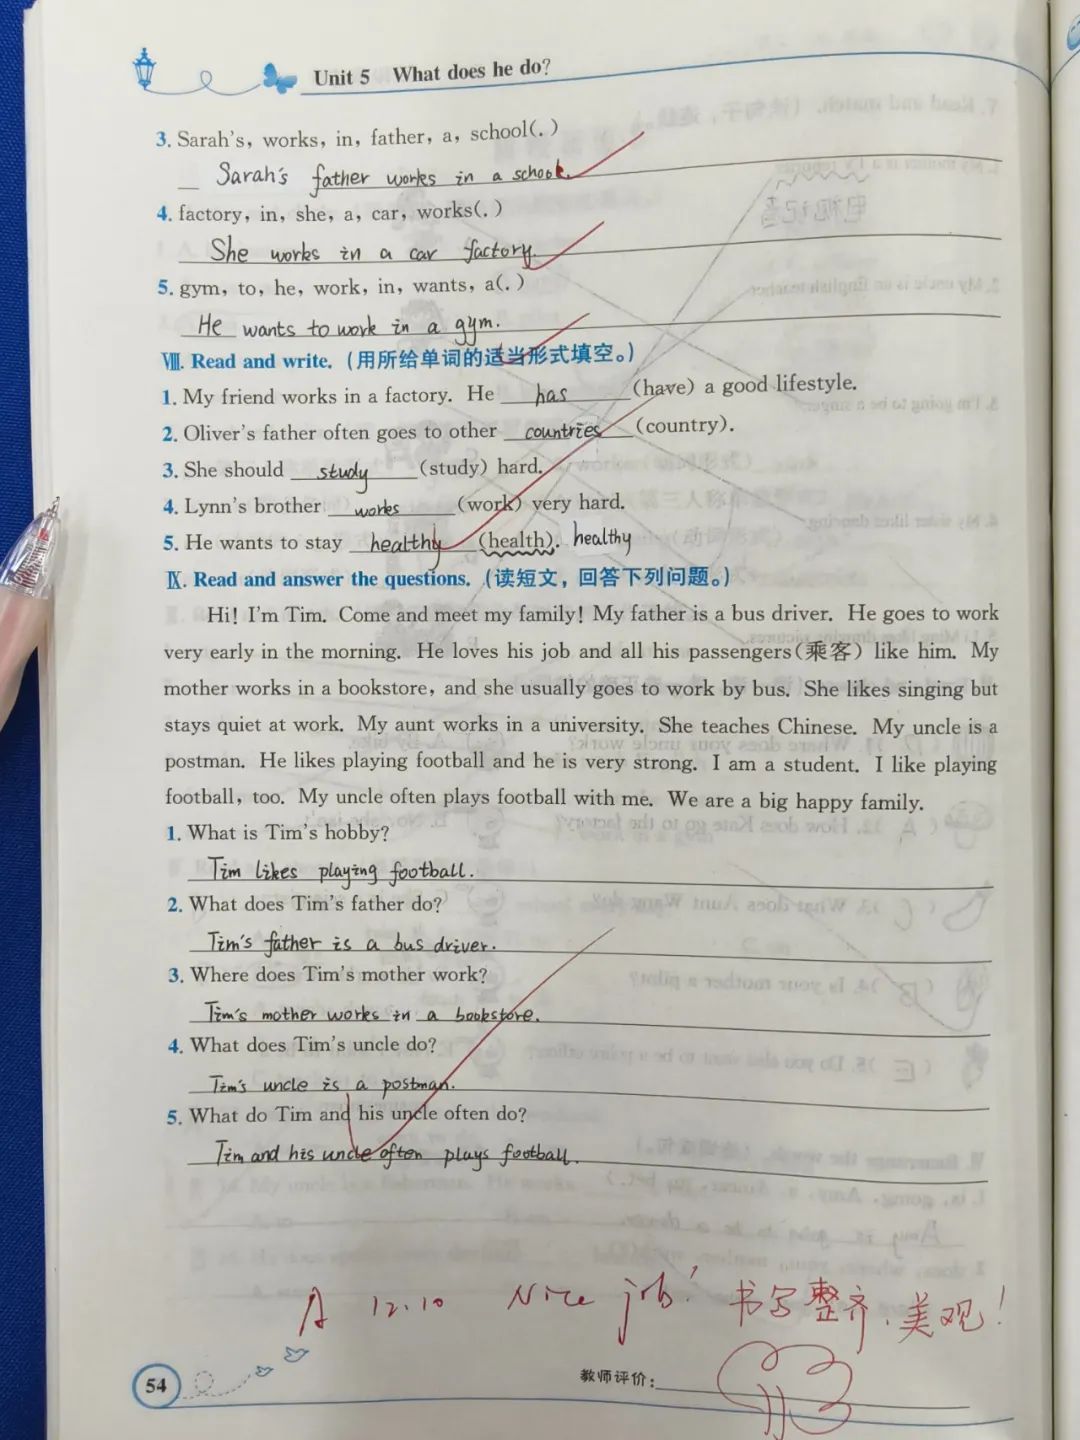 Unit 5 What does he do?
3. Sarah's, works, in, father, a, school(.)
Sarah's father works in a school.
4. factory, in, she, a, car, works(.)
She works in a car factory.
5. gym, to, he, work, in, wants, a(.)
He wants to work in a gym.
Ⅷ. Read and write. (用所给单词的适当形式填空。)
1. My friend works in a factory. He has (have) a good lifestyle.
2. Oliver's father often goes to other countries (country).
3. She should study (study) hard.
4. Lynn's brother works (work) very hard.
5. He wants to stay healthy (health). healthy
Ⅸ. Read and answer the questions. (读短文，回答下列问题。)
Hi! I'm Tim. Come and meet my family! My father is a bus driver. He goes to work
very early in the morning. He loves his job and all his passengers(乘客) like him. My
mother works in a bookstore, and she usually goes to work by bus. She likes singing but
stays quiet at work. My aunt works in a university. She teaches Chinese. My uncle is a
postman. He likes playing football and he is very strong. I am a student. I like playing
football, too. My uncle often plays football with me. We are a big happy family.
1. What is Tim's hobby?
Tim likes playing football.
2. What does Tim's father do?
Tim's father is a bus driver.
3. Where does Tim's mother work?
Tim's mother works in a bookstore.
4. What does Tim's uncle do?
Tim's uncle is a postman.
5. What do Tim and his uncle often do?
Tim and his uncle often plays football.
A 12.10 Nice job! 书写整齐、美观!
54
教师评价: